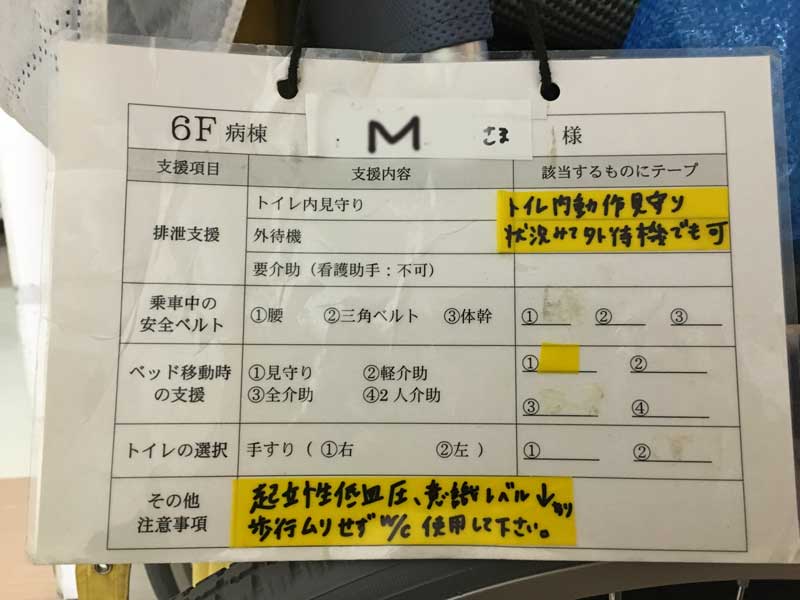 6F 病棟 M さま 様
支援項目 支援内容 該当するものにテープ
排泄支援
トイレ内見守り
トイレ内動作見守り
外待機
状況みて外待機でも可
要介助（看護助手：不可）
乗車中の
安全ベルト
①腰 ②三角ベルト ③体幹
① ② ③
ベッド移動時
の支援
①見守り ②軽介助
③全介助 ④2人介助
① ②
③ ④
トイレの選択 手すり（ ①右 ②左 ） ① ②
その他
注意事項
起立性低血圧、意識レベル↓あり
歩行ムリせずW/C使用して下さい。